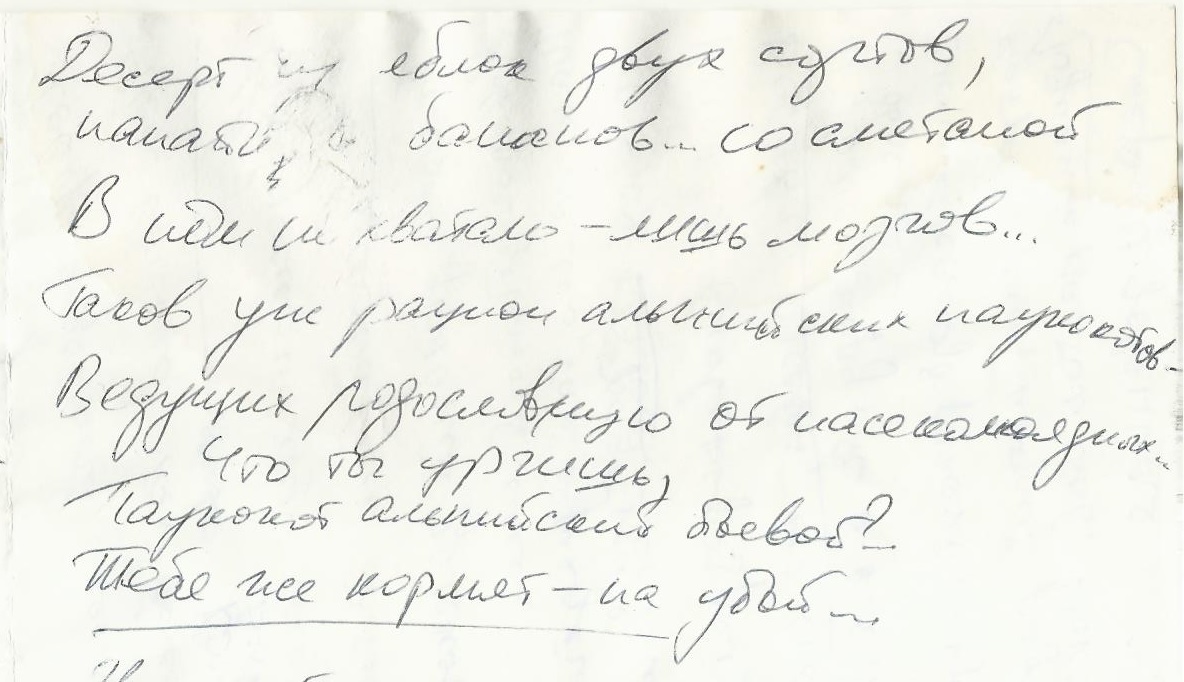 Десерт из яблок двух сортов,
бананов... со сметаной
В нём не хватало – лишь мозгов...
Таков уж рацион альпийских паукокотов –
Ведущих родословную от насекомоядных...
Что ты урчишь,
Паукокот альпийский боевой?..
Тебя же кормят – на убой...